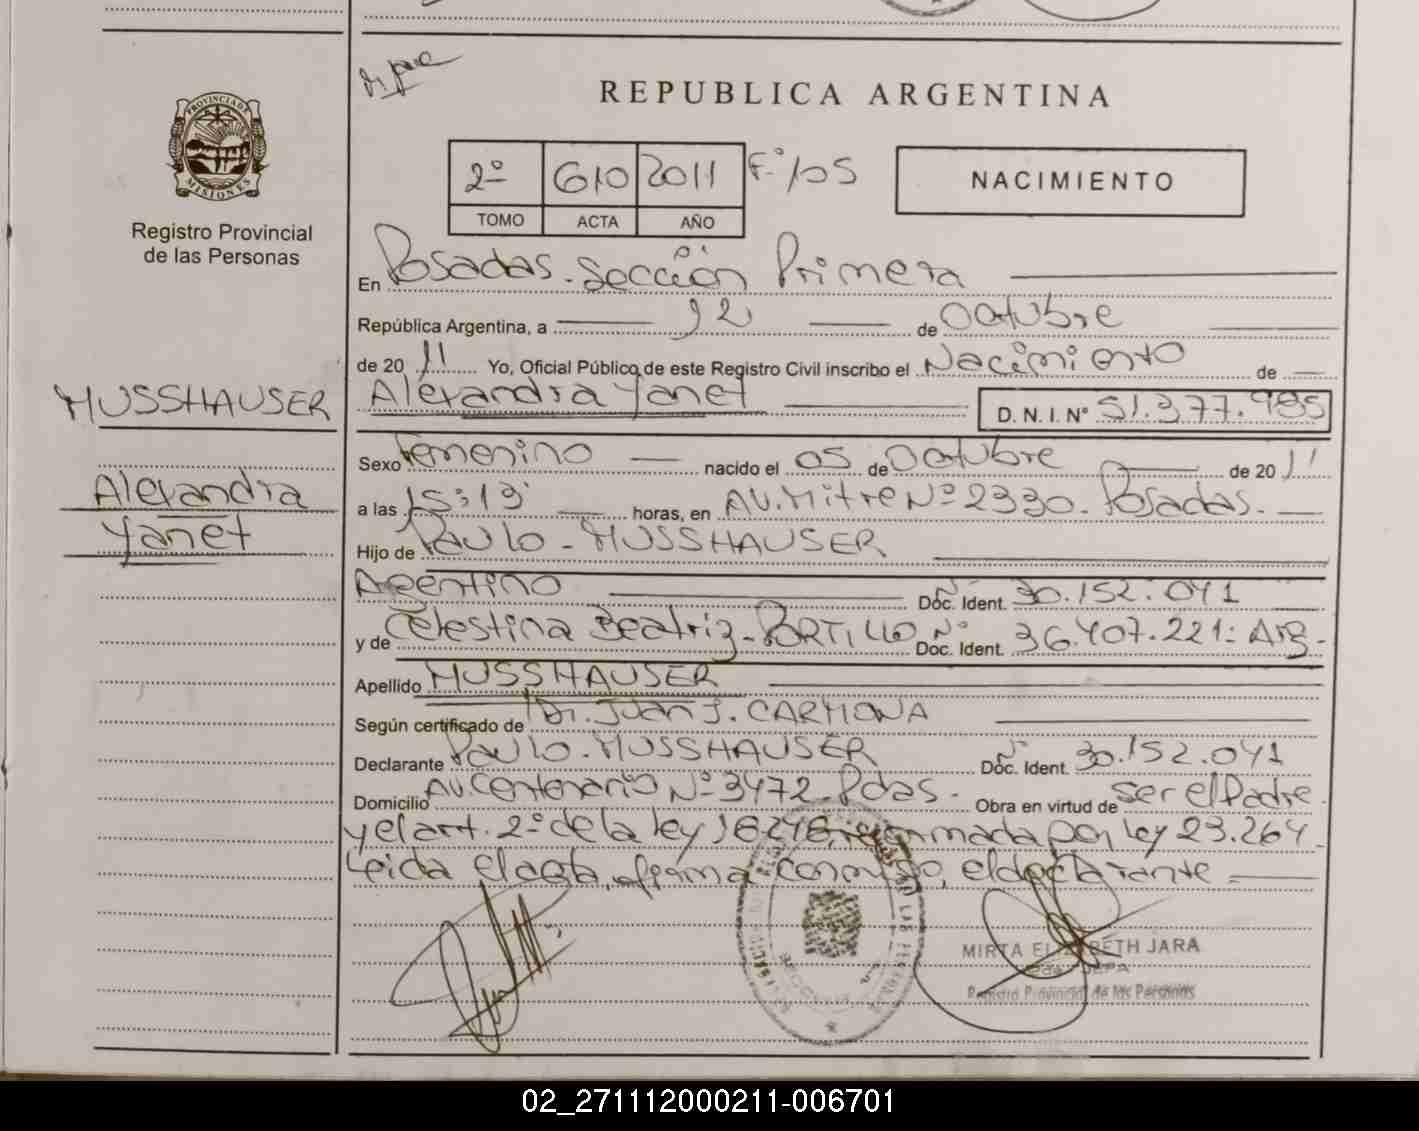 REPUBLICA ARGENTINA
PROVINCIA DE MISIONES
Registro Provincial
de las Personas
2º 610 2011 Fº 105
TOMO ACTA AÑO
NACIMIENTO
En Posadas - Sección Primera
República Argentina, a 12 de Octubre
de 2011 Yo, Oficial Público de este Registro Civil inscribo el Nacimiento de
Alexandra Yanet D. N. I. Nº 51.377.985
MUSSHAUSER
Alexandra
Yanet
Sexo Femenino nacido el 05 de Octubre de 2011
a las 15:13 horas, en AV. Mitre Nº 2330. Posadas.
Hijo de Paulo - MUSSHAUSER
Argentino Nº Doc. Ident. 30.152.041
y de Celestina Beatriz - PORTILLO Nº Doc. Ident. 36.407.221: Arg.
Apellido MUSSHAUSER
Según certificado de Dr. Juan J. CARMONA
Declarante Paulo - MUSSHAUSER Nº Doc. Ident. 30.152.041
Domicilio AV Centenario Nº 3472 Pdas. Obra en virtud de ser el Padre
y el art. 2º de la ley 18248, reformada por ley 23.264.
Leida el acta, firma conmigo, el declarante
MIRTA ELIZABETH JARA
Registro Provincial de las Personas
02_271112000211-006701